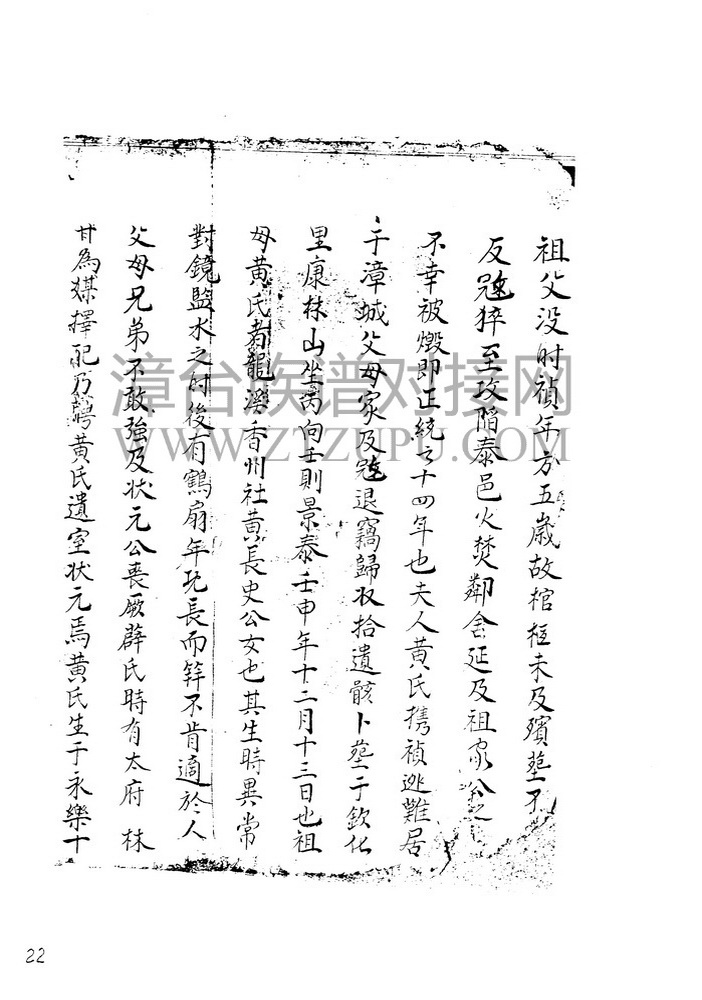 祖父没时禎年方五歲故棺柩未及殯塟不
反冦猝至攻陷泰邑火焚鄰舍延及祖家
不幸被燬即正統之十四年也夫人黄氏携禎逃難居
于漳城父母家及冦退竊歸收拾遺骸卜塟于欽化
里康林山坐丙向壬則景泰壬申年十二月十三日也祖
母黄氏者龍溪香州社黄長史公女也其生時異常
對鏡監水之时後有鶴扇年既長而笄不肯適於人
父母兄弟不敢強及状元公喪厥薛氏時有太府 林
甘為媒擇配乃聘黄氏遺室状元焉黄氏生于永樂十
漳台族谱对接网
WWW.ZTZUPU.COM
22